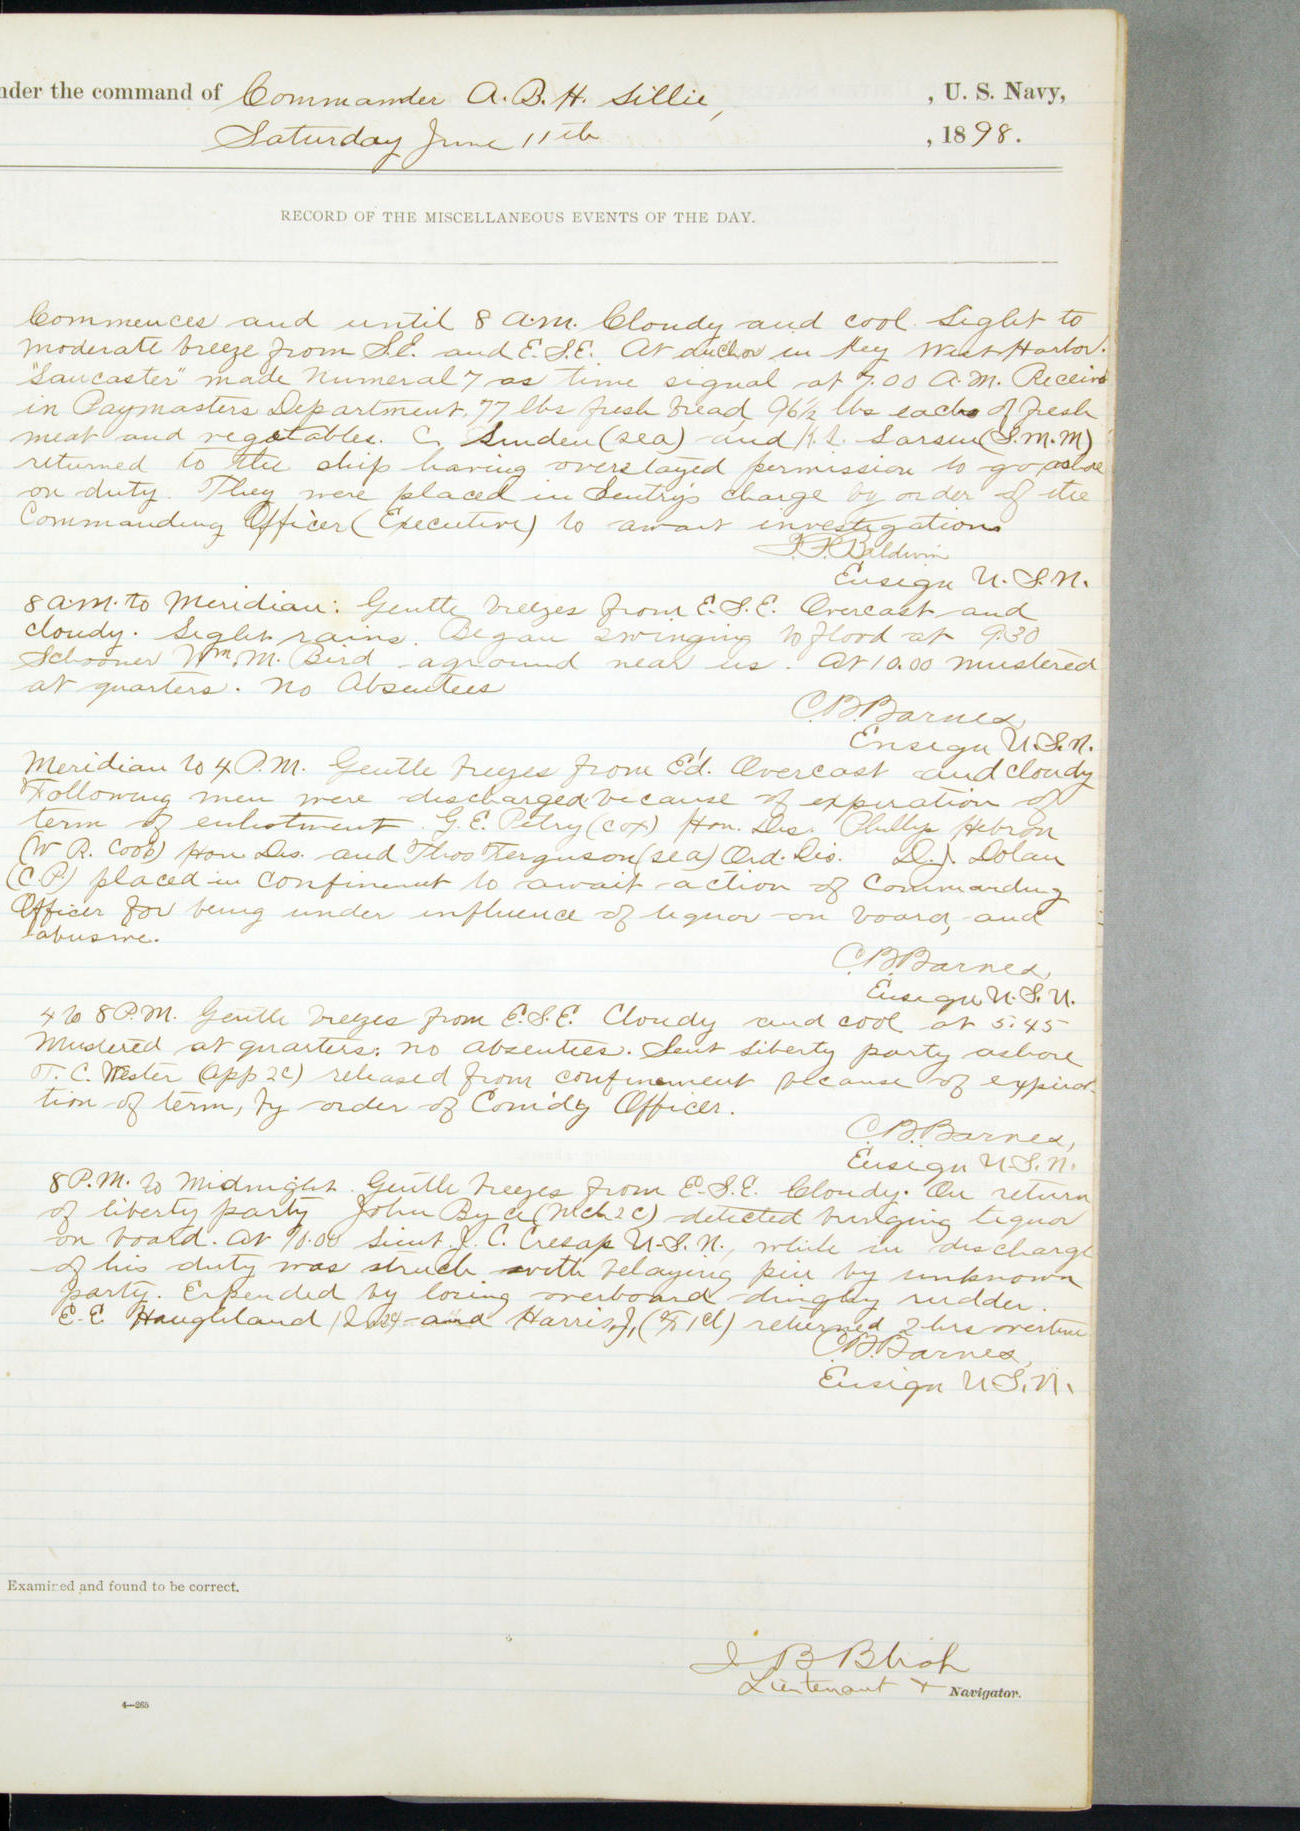 nder the command of Commander A. B. H. Lillie, , U. S. Navy,
Saturday June 11th , 1898.
RECORD OF THE MISCELLANEOUS EVENTS OF THE DAY.
Commences and until 8 A.M. Cloudy and cool. Light to
moderate breeze from S.E. and E.S.E. At anchor in Key West Harbor.
"Lancaster" made numeral 7 as time signal at 7.00 A.M. Received
in Paymasters Department, 77 lbs fresh bread 96½ lbs each of fresh
meat and vegetables. C. Linden (sea) and Larsen (S.M.M)
returned to the ship having overstayed permission to go ashore
on duty. They were placed in Sentry's charge by order of the
Commanding Officer (Executive) to await investigation
F.P. Baldwin
Ensign U.S.N.
8 A.M. to Meridian: Gentle breezes from E.S.E. Overcast and
cloudy. Light rains. Began swinging to flood at 9.30
Schooner Wm. M. Bird aground near us. At 10.00 mustered
at quarters. No Absentees
C.B. Barnes,
Ensign U.S.N.
Meridian to 4 P.M. Gentle breezes from E'd. Overcast and cloudy
Following men were discharged because of expiration of
term of enlistment. G.E. Petry (cox) Hon. Dis. Phillip Hebron
(W.R. Cook) Hon. Dis. and Thos Ferguson (sea) Ord. Dis. D.J. Dolan
(C.P.) placed in confinement to await action of Commanding
Officer for being under influence of liquor on board, and
abusive.
C.B. Barnes,
Ensign U.S.N.
4 to 8 P.M. Gentle breezes from E.S.E. Cloudy and cool at 5.45
Mustered at quarters: no absentees. Sent liberty party ashore
T. C. Wester (App 2c) released from confinement because of expira-
tion of term, by order of Com'd'g Officer.
C.B. Barnes,
Ensign U.S.N.
8 P.M. to Midnight. Gentle breezes from E.S.E. Cloudy. On return
of liberty party John (Mch 2c) detected bringing liquor
on board. At 10.00 Lieut. J. C. Cresap U.S.N., while in discharge
of his duty was struck with belaying pin by unknown
party. Expended by losing overboard dinghy rudder.
E. E. Haughland and Harris, J, (F 1cl) returned 2 hrs overtime
C.B. Barnes,
Ensign U.S.N.
Examined and found to be correct.
J B Blish
Lieutenant + Navigator.
4—265